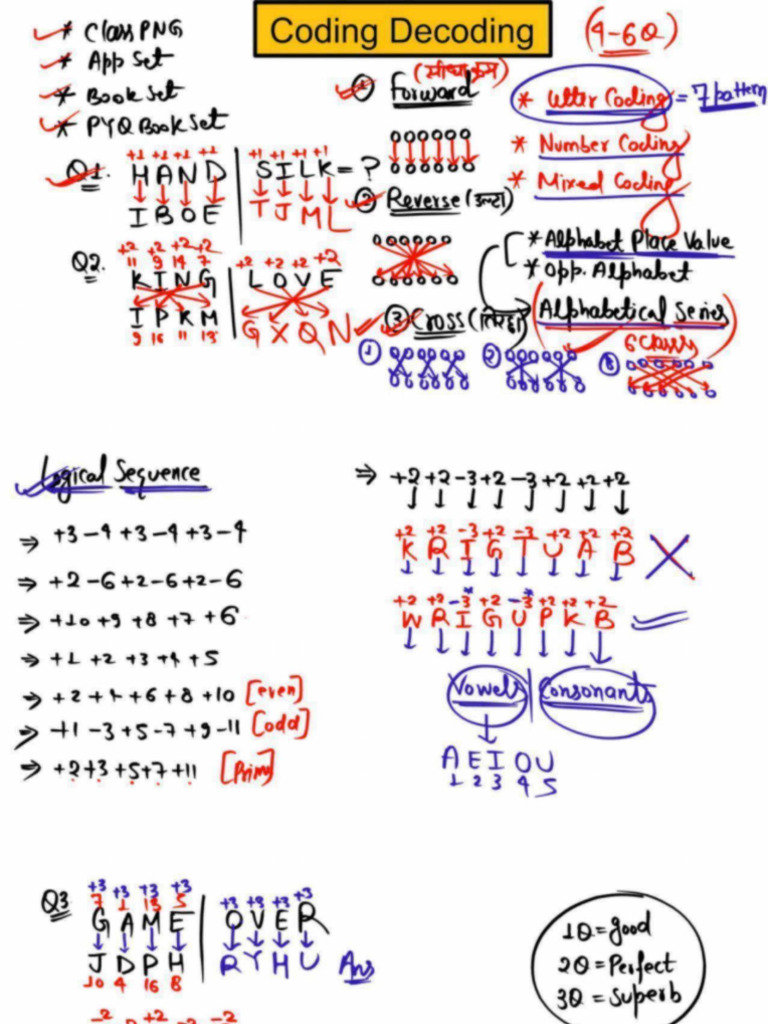 Coding Decoding
(4-6Q)
* Class PNG
* App Set
* Book Set
* PYQ Book Set
① Forward
(सीधा क्रम)
* Letter Coding = 7 pattern
* Number Coding
* Mixed Coding
Q1. +1 +1 +1 +1 | +1 +1 +1 +1
HAND | SILK = ?
IBOE | TJML
② Reverse (उल्टा)
* Alphabet Place Value
* Opp. Alphabet
(Alphabetical Series)
6 Classes
Q2. +2 +2 +2 +2 | +2 +2 +2 +2
11 9 14 7
KING | LOVE
IPKM | GXQN
9 16 11 13
③ Cross
① ② ③
Logical Sequence
⇒ +3-4+3-4+3-4
⇒ +2-6+2-6+2-6
⇒ +10+9+8+7+6
⇒ +1+2+3+4+5
⇒ +2+4+6+8+10 [even]
⇒ +1-3+5-7+9-11 [odd]
⇒ +2+3+5+7+11 [Prime]
⇒ +2+2-3+2-3+2+2+2
+2 +2 -3 +2 -3 +2 +2 +2
K R I G T U A B
+2 +2 -3 +2 -3 +2 +2 +2
W R I G U P K B
Vowels | Consonants
A E I O U
1 2 3 4 5
Q3 +3 +3 +3 +3 | +3 +3 +3 +3
7 1 13 5
GAME | OVER
JDPH | RYHU Ans
10 4 16 8
1Q = Good
2Q = Perfect
3Q = Superb